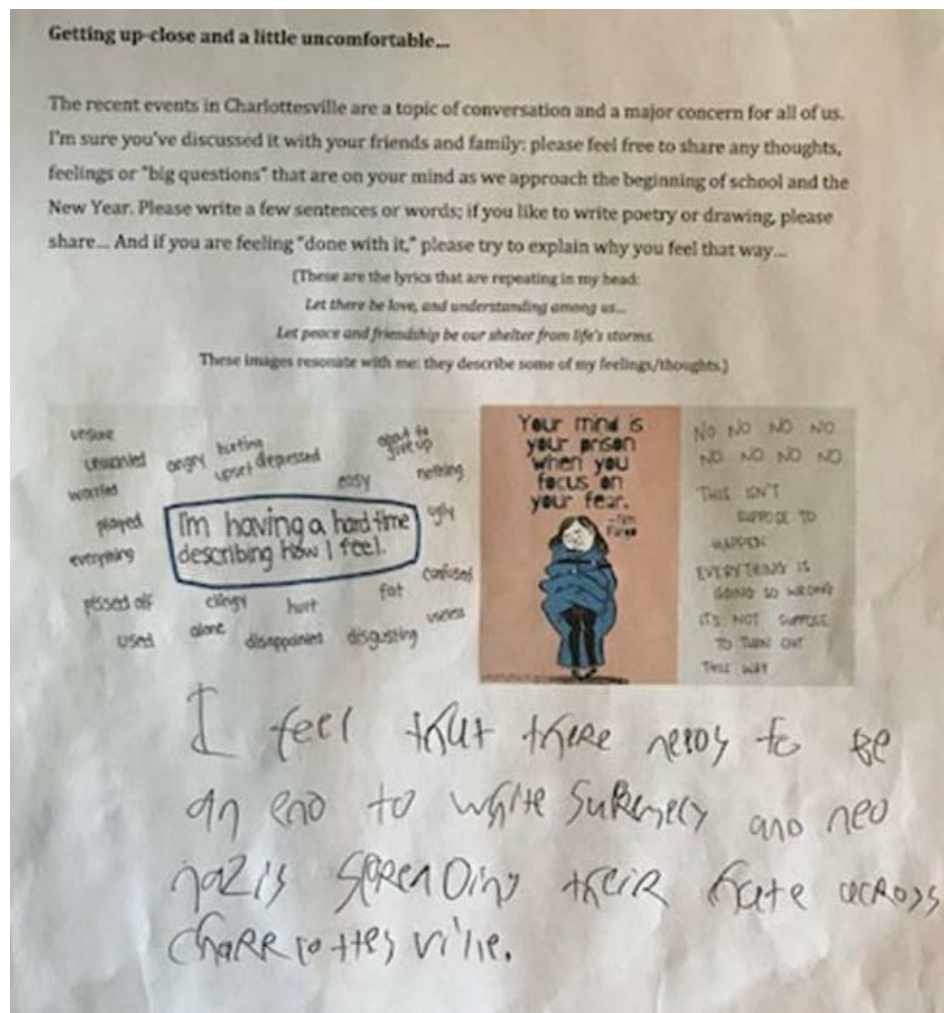 Getting up-close and a little uncomfortable...
The recent events in Charlottesville are a topic of conversation and a major concern for all of us.
I'm sure you've discussed it with your friends and family; please feel free to share any thoughts,
feelings or "big questions" that are on your mind as we approach the beginning of school and the
New Year. Please write a few sentences or words; if you like to write poetry or drawing, please
share... And if you are feeling "done with it," please try to explain why you feel that way...
(These are the lyrics that are repeating in my head:
Let there be love, and understanding among us...
Let peace and friendship be our shelter from life's storms.
These images resonate with me: they describe some of my feelings/thoughts.)
unsure
unwanted
worried
angry
hurting
upset
depressed
about to
give up
easy
nothing
played
everything
I'm having a hard time
describing how I feel.
ugly
confused
pissed off
clingy
hurt
fat
useless
used
alone
disappointed
disgusting
Your mind is
your prison
when you
focus on
your fear.
NO NO NO NO
NO NO NO NO
THIS ISN'T
SUPPOSE TO
HAPPEN
EVERYTHING IS
GOING SO WRONG
IT'S NOT SUPPOSE
TO TURN OUT
THIS WAY
I feel that there needs to be
an end to white Supremecy and neo
nazis spreading their hate across
charrlottesville.